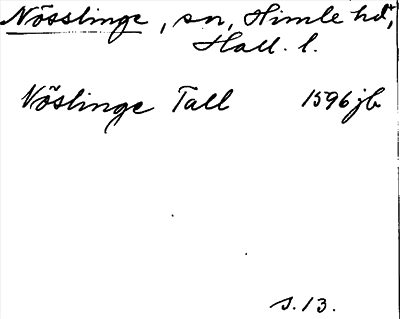 Nösslinge, sn, Himle hd,
Hall. l.
Nöslinge Tall 1596 jb
s. 13.